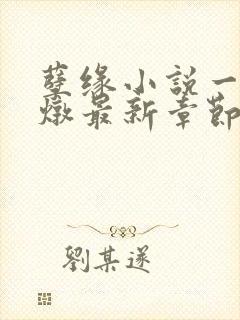 孽缘小説一
燉最新章節
劉某遂